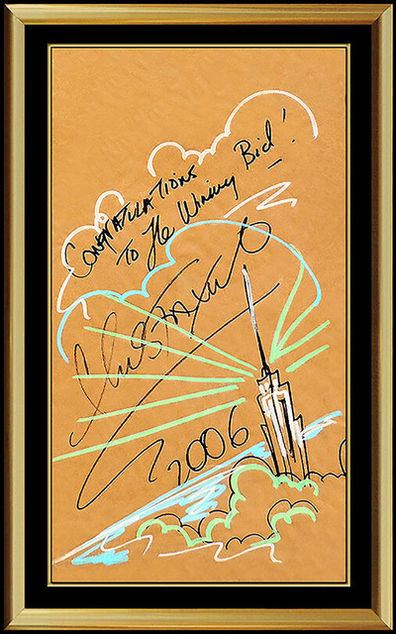 CONGRATULATIONS
To The Wining Bid!
2006